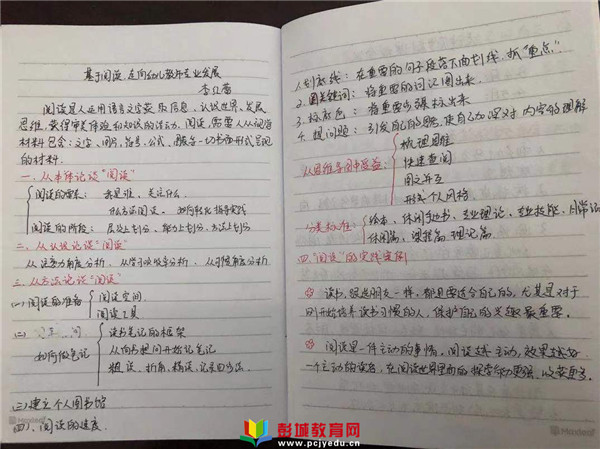 基于阅读 走向幼儿教师专业发展
阅读是人运用语言文字获取信息、认识世界、发展
思维、获得审美体验和知识的活动。阅读,需要人从视觉
材料包含:文字、图片、符号、公式、图表等一切书面形式呈现
的材料.
一、从本体论谈"阅读"
阅读的需求: 我是谁、关注什么
什么方式阅读、如何转化指导实践
阅读的阶段: 层次上划分、能力上划分、方法上划分
二、从认识论谈"阅读"
从注意力角度分析、从学习吸收率分析、从习惯角度分析.
三、从方法论谈"阅读"
(一)阅读的准备
阅读空间
阅读工具
(二)
如何做笔记
读书笔记的框架
从向书提问开始记笔记
粗读、折角、精读、记录由多出
(三)建立个人图书馆
(四)、阅读的速度.
1.划底线: 在重要的句子段落下面划线,抓"重点".
2.圈关键词: 将重要的词汇圈出来.
3.标颜色: 将重要步骤标出来
4.想问题: 引发自己的思,使自己加深对内容的理解
从思维导图中受益:
梳理思维
快速查阅
图文并互
形成个人风格.
分类标准: 绘本、休闲手边书、专业理论、专业技能、日常记
休闲篇、课程篇、理论篇
四."阅读"的实践案例
读书,跟选朋友一样,都是要适合自己的,尤其是对于
刚开始培养读书习惯的人,保护自己的兴趣最重要.
阅读是一件主动的事情,阅读越主动,效果越好.
一个主动的读者,在阅读世界里面的探索能力更强,收获更多.
彭城教育网
www.pcjyedu.cn